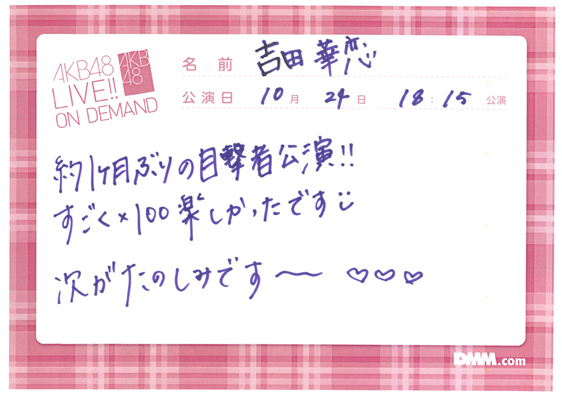 AKB48
LIVE!!
ON DEMAND
AKB
48
名前 吉田華恋
公演日 10月 24日 18:15 公演
約1ヶ月ぶりの目撃者公演!!
すごく×100楽しかったです
次がたのしみです〜 ♡♡♡
DMM.com